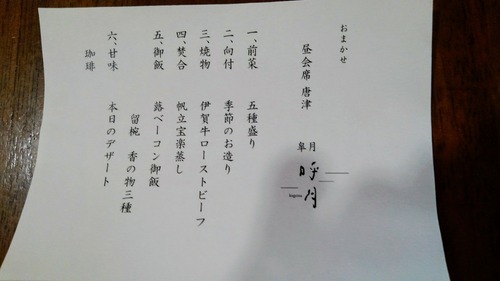 おまかせ
昼会席 唐津
皐月
一、前菜 五種盛り
二、向付 季節のお造り
三、焼物 伊賀牛ローストビーフ
四、焚合 帆立宝楽蒸し
五、御飯 蕗ベーコン御飯
留椀 香の物三種
六、甘味 本日のデザート
珈琲